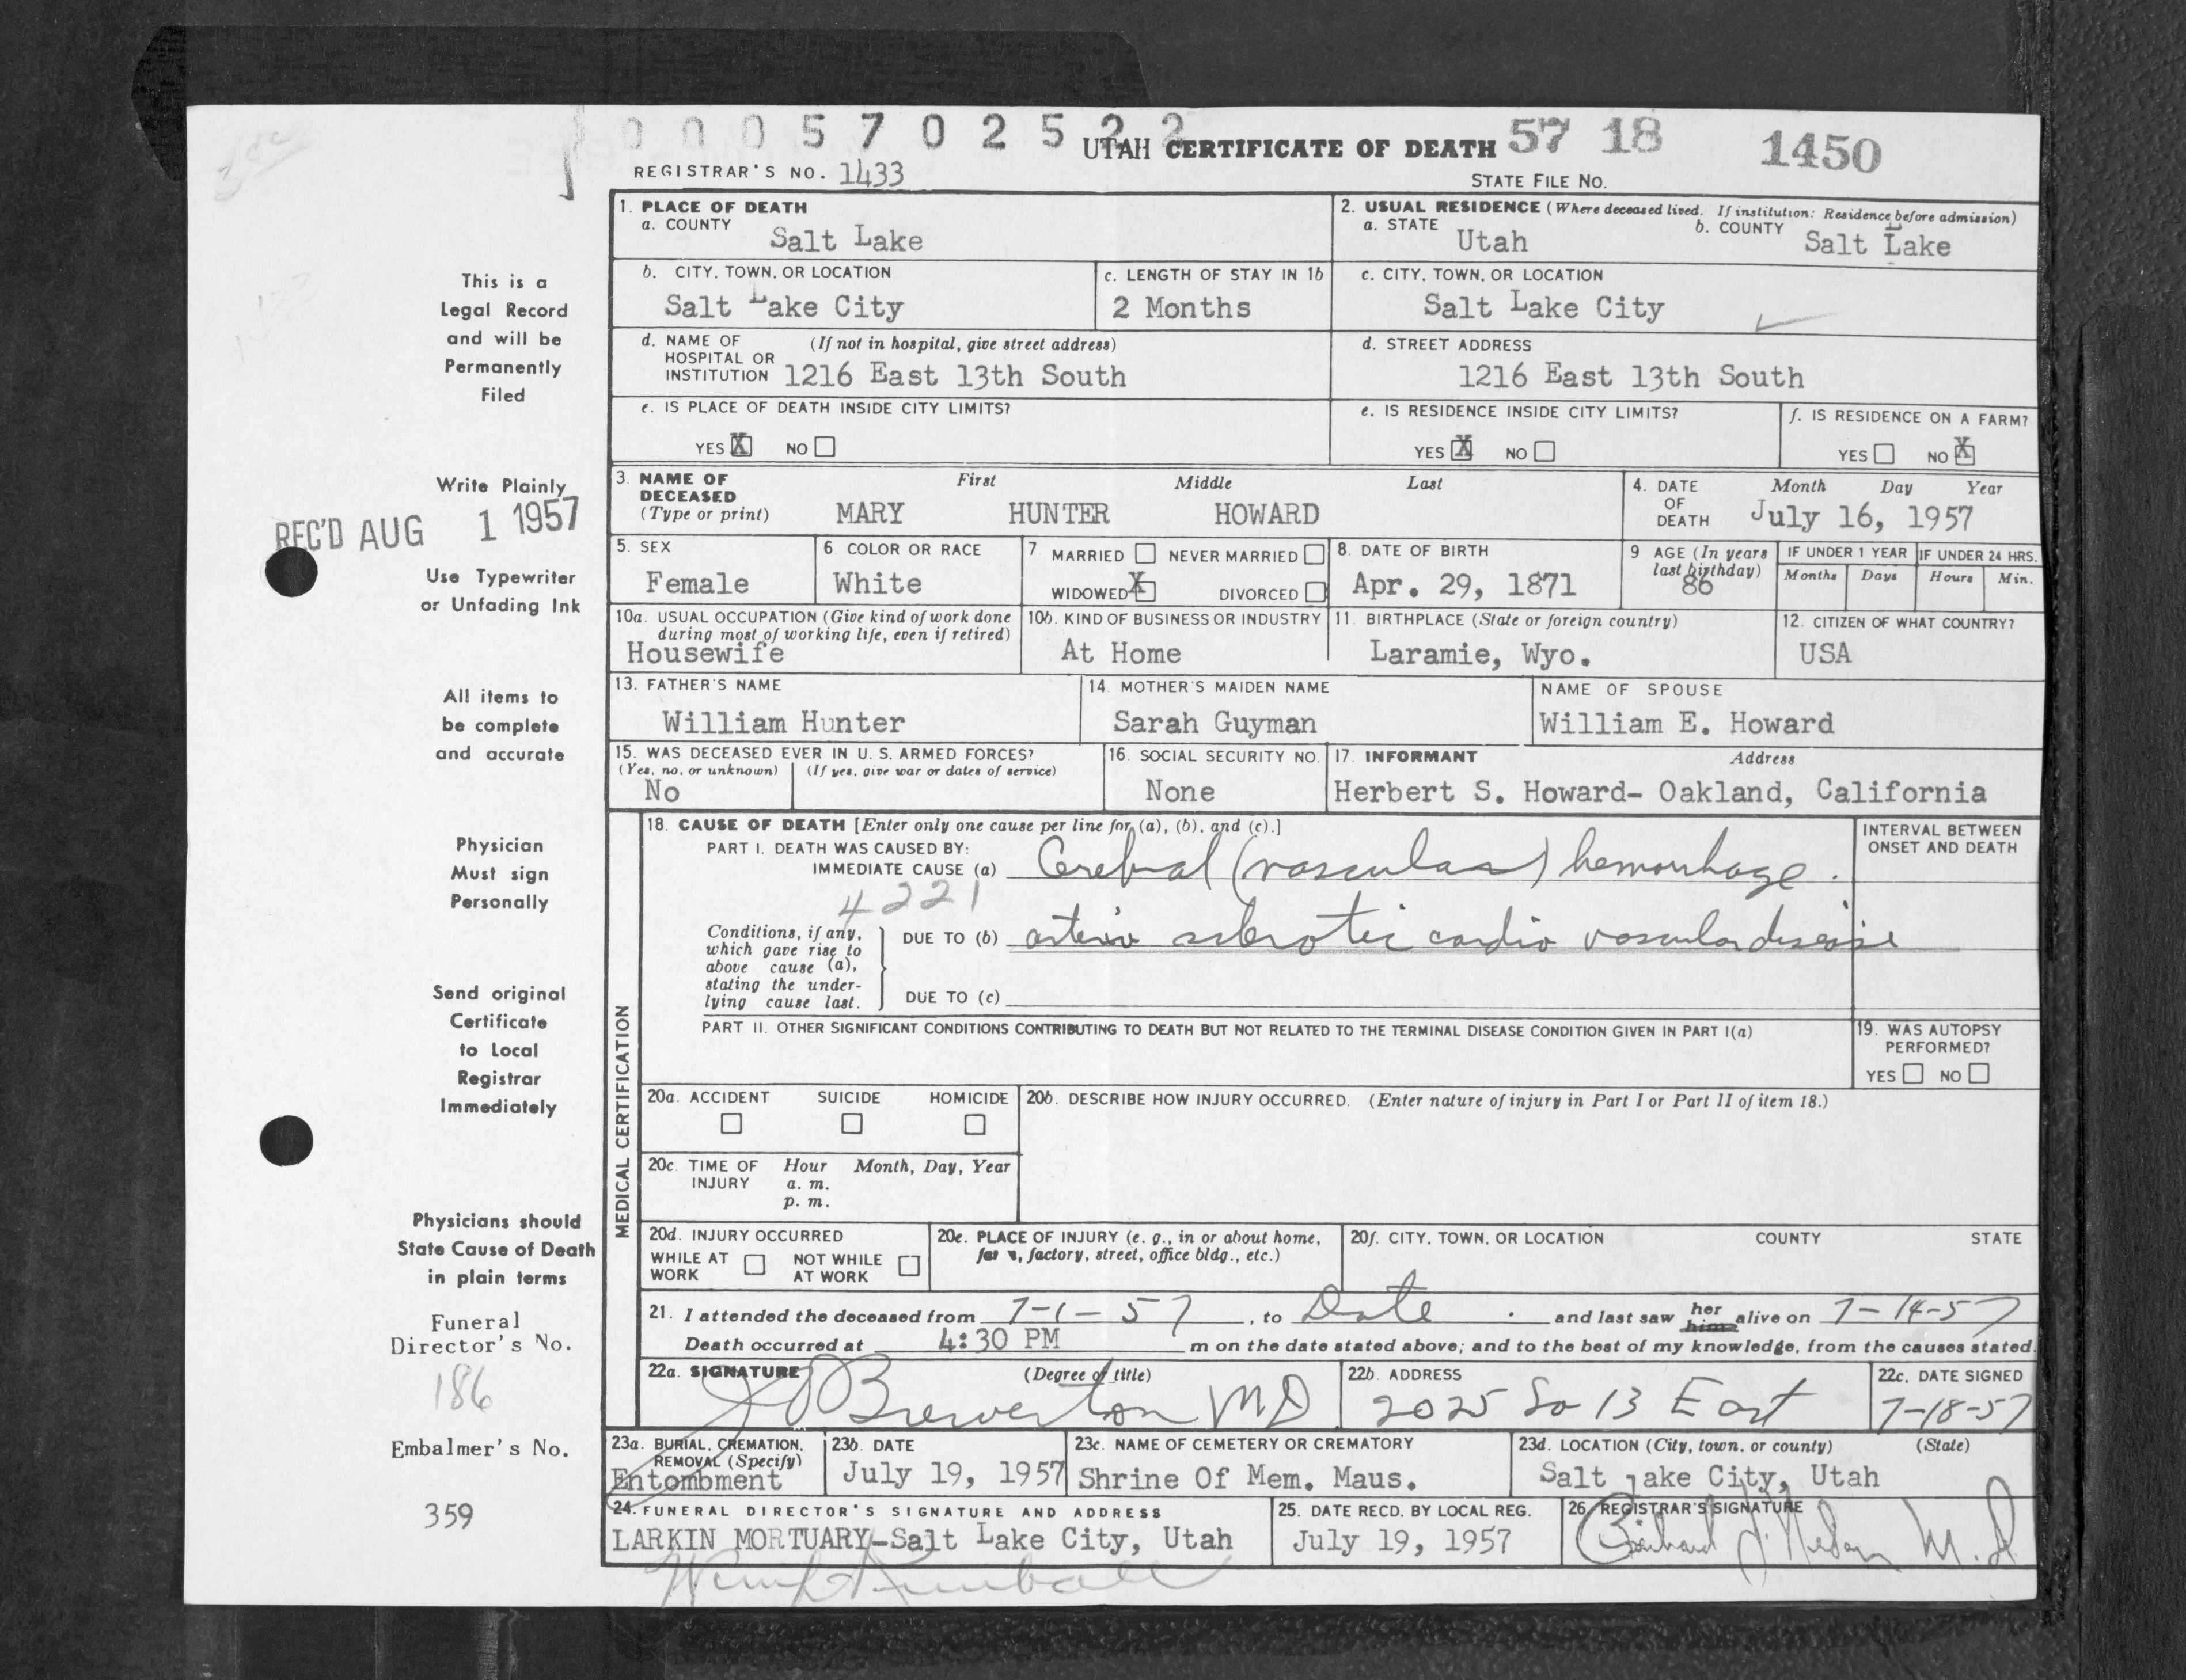 0 0 0 5 7 0 2 5 2 2
UTAH CERTIFICATE OF DEATH 57 18 1450
REGISTRAR'S NO. 1433
STATE FILE NO.
1. PLACE OF DEATH
a. COUNTY
Salt Lake
2. USUAL RESIDENCE (Where deceased lived. If institution: Residence before admission)
a. STATE Utah b. COUNTY Salt Lake
b. CITY, TOWN, OR LOCATION
Salt Lake City
c. LENGTH OF STAY IN 1b
2 Months
c. CITY, TOWN, OR LOCATION
Salt Lake City
d. NAME OF (If not in hospital, give street address)
HOSPITAL OR
INSTITUTION 1216 East 13th South
d. STREET ADDRESS
1216 East 13th South
e. IS PLACE OF DEATH INSIDE CITY LIMITS?
YES X NO
e. IS RESIDENCE INSIDE CITY LIMITS?
YES X NO
f. IS RESIDENCE ON A FARM?
YES NO X
3. NAME OF DECEASED (Type or print)
First Middle Last
MARY HUNTER HOWARD
4. DATE OF DEATH
Month Day Year
July 16, 1957
5. SEX
Female
6. COLOR OR RACE
White
7. MARRIED NEVER MARRIED
WIDOWED X DIVORCED
8. DATE OF BIRTH
Apr. 29, 1871
9 AGE (In years
last birthday)
86
IF UNDER 1 YEAR IF UNDER 24 HRS.
Months Days Hours Min.
10a. USUAL OCCUPATION (Give kind of work done
during most of working life, even if retired)
Housewife
10b. KIND OF BUSINESS OR INDUSTRY
At Home
11. BIRTHPLACE (State or foreign country)
Laramie, Wyo.
12. CITIZEN OF WHAT COUNTRY?
USA
13. FATHER'S NAME
William Hunter
14. MOTHER'S MAIDEN NAME
Sarah Guyman
NAME OF SPOUSE
William E. Howard
15. WAS DECEASED EVER IN U. S. ARMED FORCES?
(Yes, no, or unknown) (If yes, give war or dates of service)
No
16. SOCIAL SECURITY NO.
None
17. INFORMANT Address
Herbert S. Howard- Oakland, California
MEDICAL CERTIFICATION
18. CAUSE OF DEATH [Enter only one cause per line for (a), (b), and (c).]
PART I. DEATH WAS CAUSED BY:
IMMEDIATE CAUSE (a) Cerebral (vascular) hemorrhage.
INTERVAL BETWEEN
ONSET AND DEATH
4221
Conditions, if any,
which gave rise to
above cause (a),
stating the under-
lying cause last.
DUE TO (b) arterio sclerotic cardio vascular disease
DUE TO (c)
PART II. OTHER SIGNIFICANT CONDITIONS CONTRIBUTING TO DEATH BUT NOT RELATED TO THE TERMINAL DISEASE CONDITION GIVEN IN PART I(a)
19. WAS AUTOPSY
PERFORMED?
YES NO
20a. ACCIDENT SUICIDE HOMICIDE
20b. DESCRIBE HOW INJURY OCCURRED. (Enter nature of injury in Part I or Part II of item 18.)
20c. TIME OF INJURY
Hour Month, Day, Year
a. m.
p. m.
20d. INJURY OCCURRED
WHILE AT WORK NOT WHILE AT WORK
20e. PLACE OF INJURY (e. g., in or about home,
farm, factory, street, office bldg., etc.)
20f. CITY, TOWN, OR LOCATION COUNTY STATE
21. I attended the deceased from 7-1-57, to Date. and last saw her him alive on 7-14-57
Death occurred at 4:30 PM m on the date stated above; and to the best of my knowledge, from the causes stated.
22a. SIGNATURE (Degree of title)
Brewerton MD
22b. ADDRESS
2025 So 13 East
22c. DATE SIGNED
7-18-57
23a. BURIAL, CREMATION,
REMOVAL (Specify)
Entombment
23b. DATE
July 19, 1957
23c. NAME OF CEMETERY OR CREMATORY
Shrine Of Mem. Maus.
23d. LOCATION (City, town, or county) (State)
Salt Lake City, Utah
24. FUNERAL DIRECTOR'S SIGNATURE AND ADDRESS
LARKIN MORTUARY-Salt Lake City, Utah
25. DATE RECD. BY LOCAL REG.
July 19, 1957
26. REGISTRAR'S SIGNATURE
M.D.
This is a
Legal Record
and will be
Permanently
Filed
Write Plainly
REC'D AUG 1 1957
Use Typewriter
or Unfading Ink
All items to
be complete
and accurate
Physician
Must sign
Personally
Send original
Certificate
to Local
Registrar
Immediately
Physicians should
State Cause of Death
in plain terms
Funeral
Director's No.
186
Embalmer's No.
359